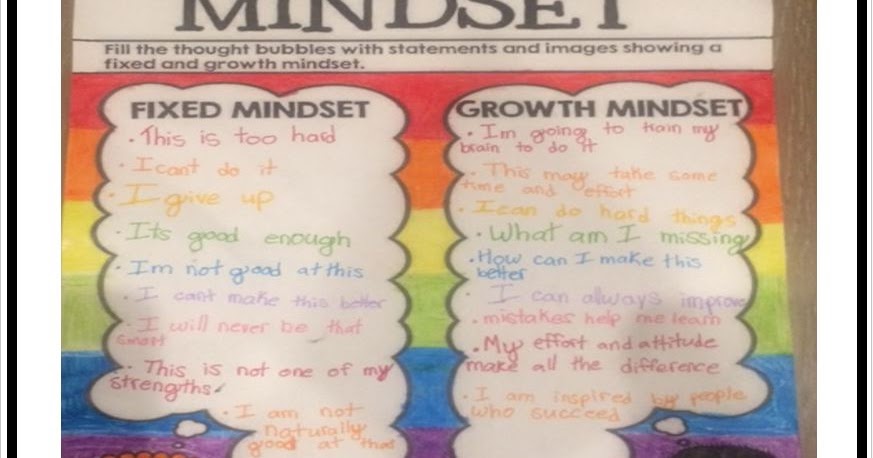 MINDSET
Fill the thought bubbles with statements and images showing a
fixed and growth mindset.
FIXED MINDSET
• This is too hard
• I cant do it
• I give up
• Its good enough
• Im not good at this
• I cant make this better
• I will never be that
smart
• This is not one of my
strengths
• I am not
naturally
good at that
GROWTH MINDSET
• Im going to train my
brain to do it
• This may take some
time and effort
• I can do hard things
• What am I missing
• How can I make this
better
• I can always improve
• mistakes help me learn
• My effort and attitude
make all the difference
• I am inspired by people
who succeed